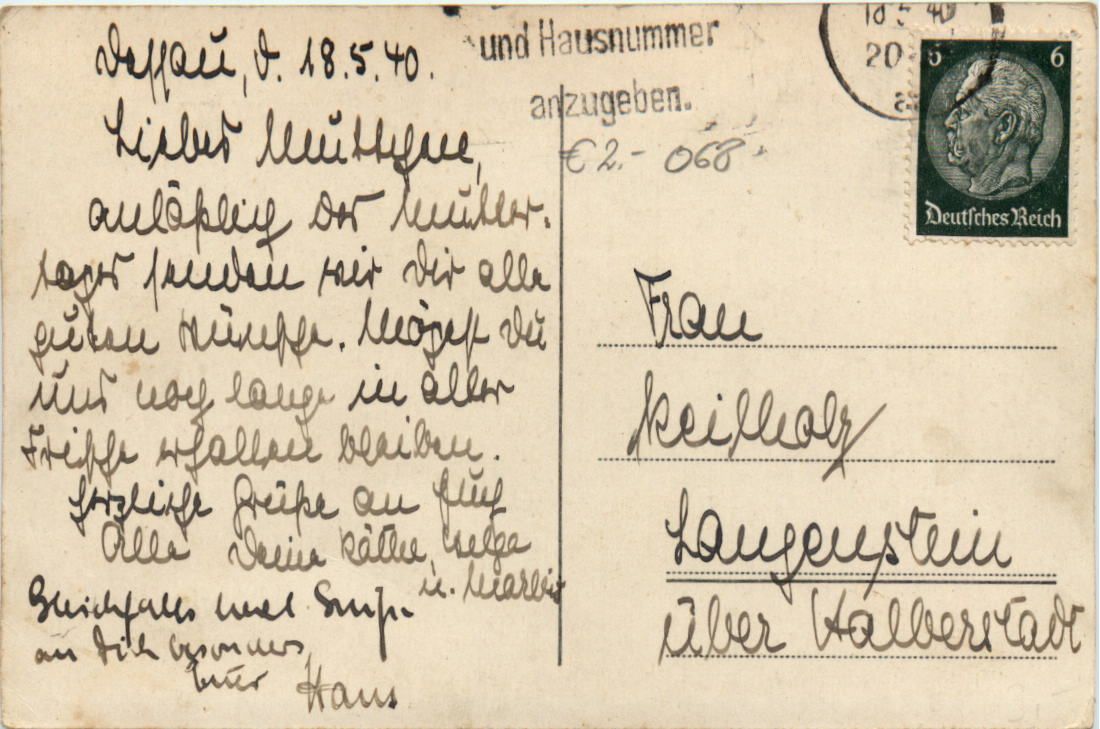 Dessau, d. 18.5.40.
Liebes Muttchen,
anläßlich des Mutter-
tages senden wir Dir alle
guten Wünsche. Mögest Du
uns noch lange in aller
Frische erhalten bleiben.
Herzliche Grüße an Euch
Alle Deine Käthe, Helga
u. Marlis
Gleichfalls
an Dich besonders
Euer Hans
und Hausnummer
anzugeben.
€ 2.- 068-
18 5 40
20
6 6
Deutsches Reich
Frau
Keilholz
Langenstein
über Halberstadt